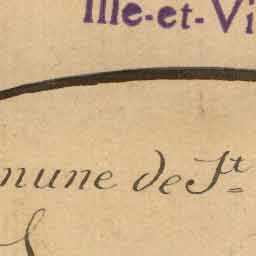 Ille-et-Vi
mune de St